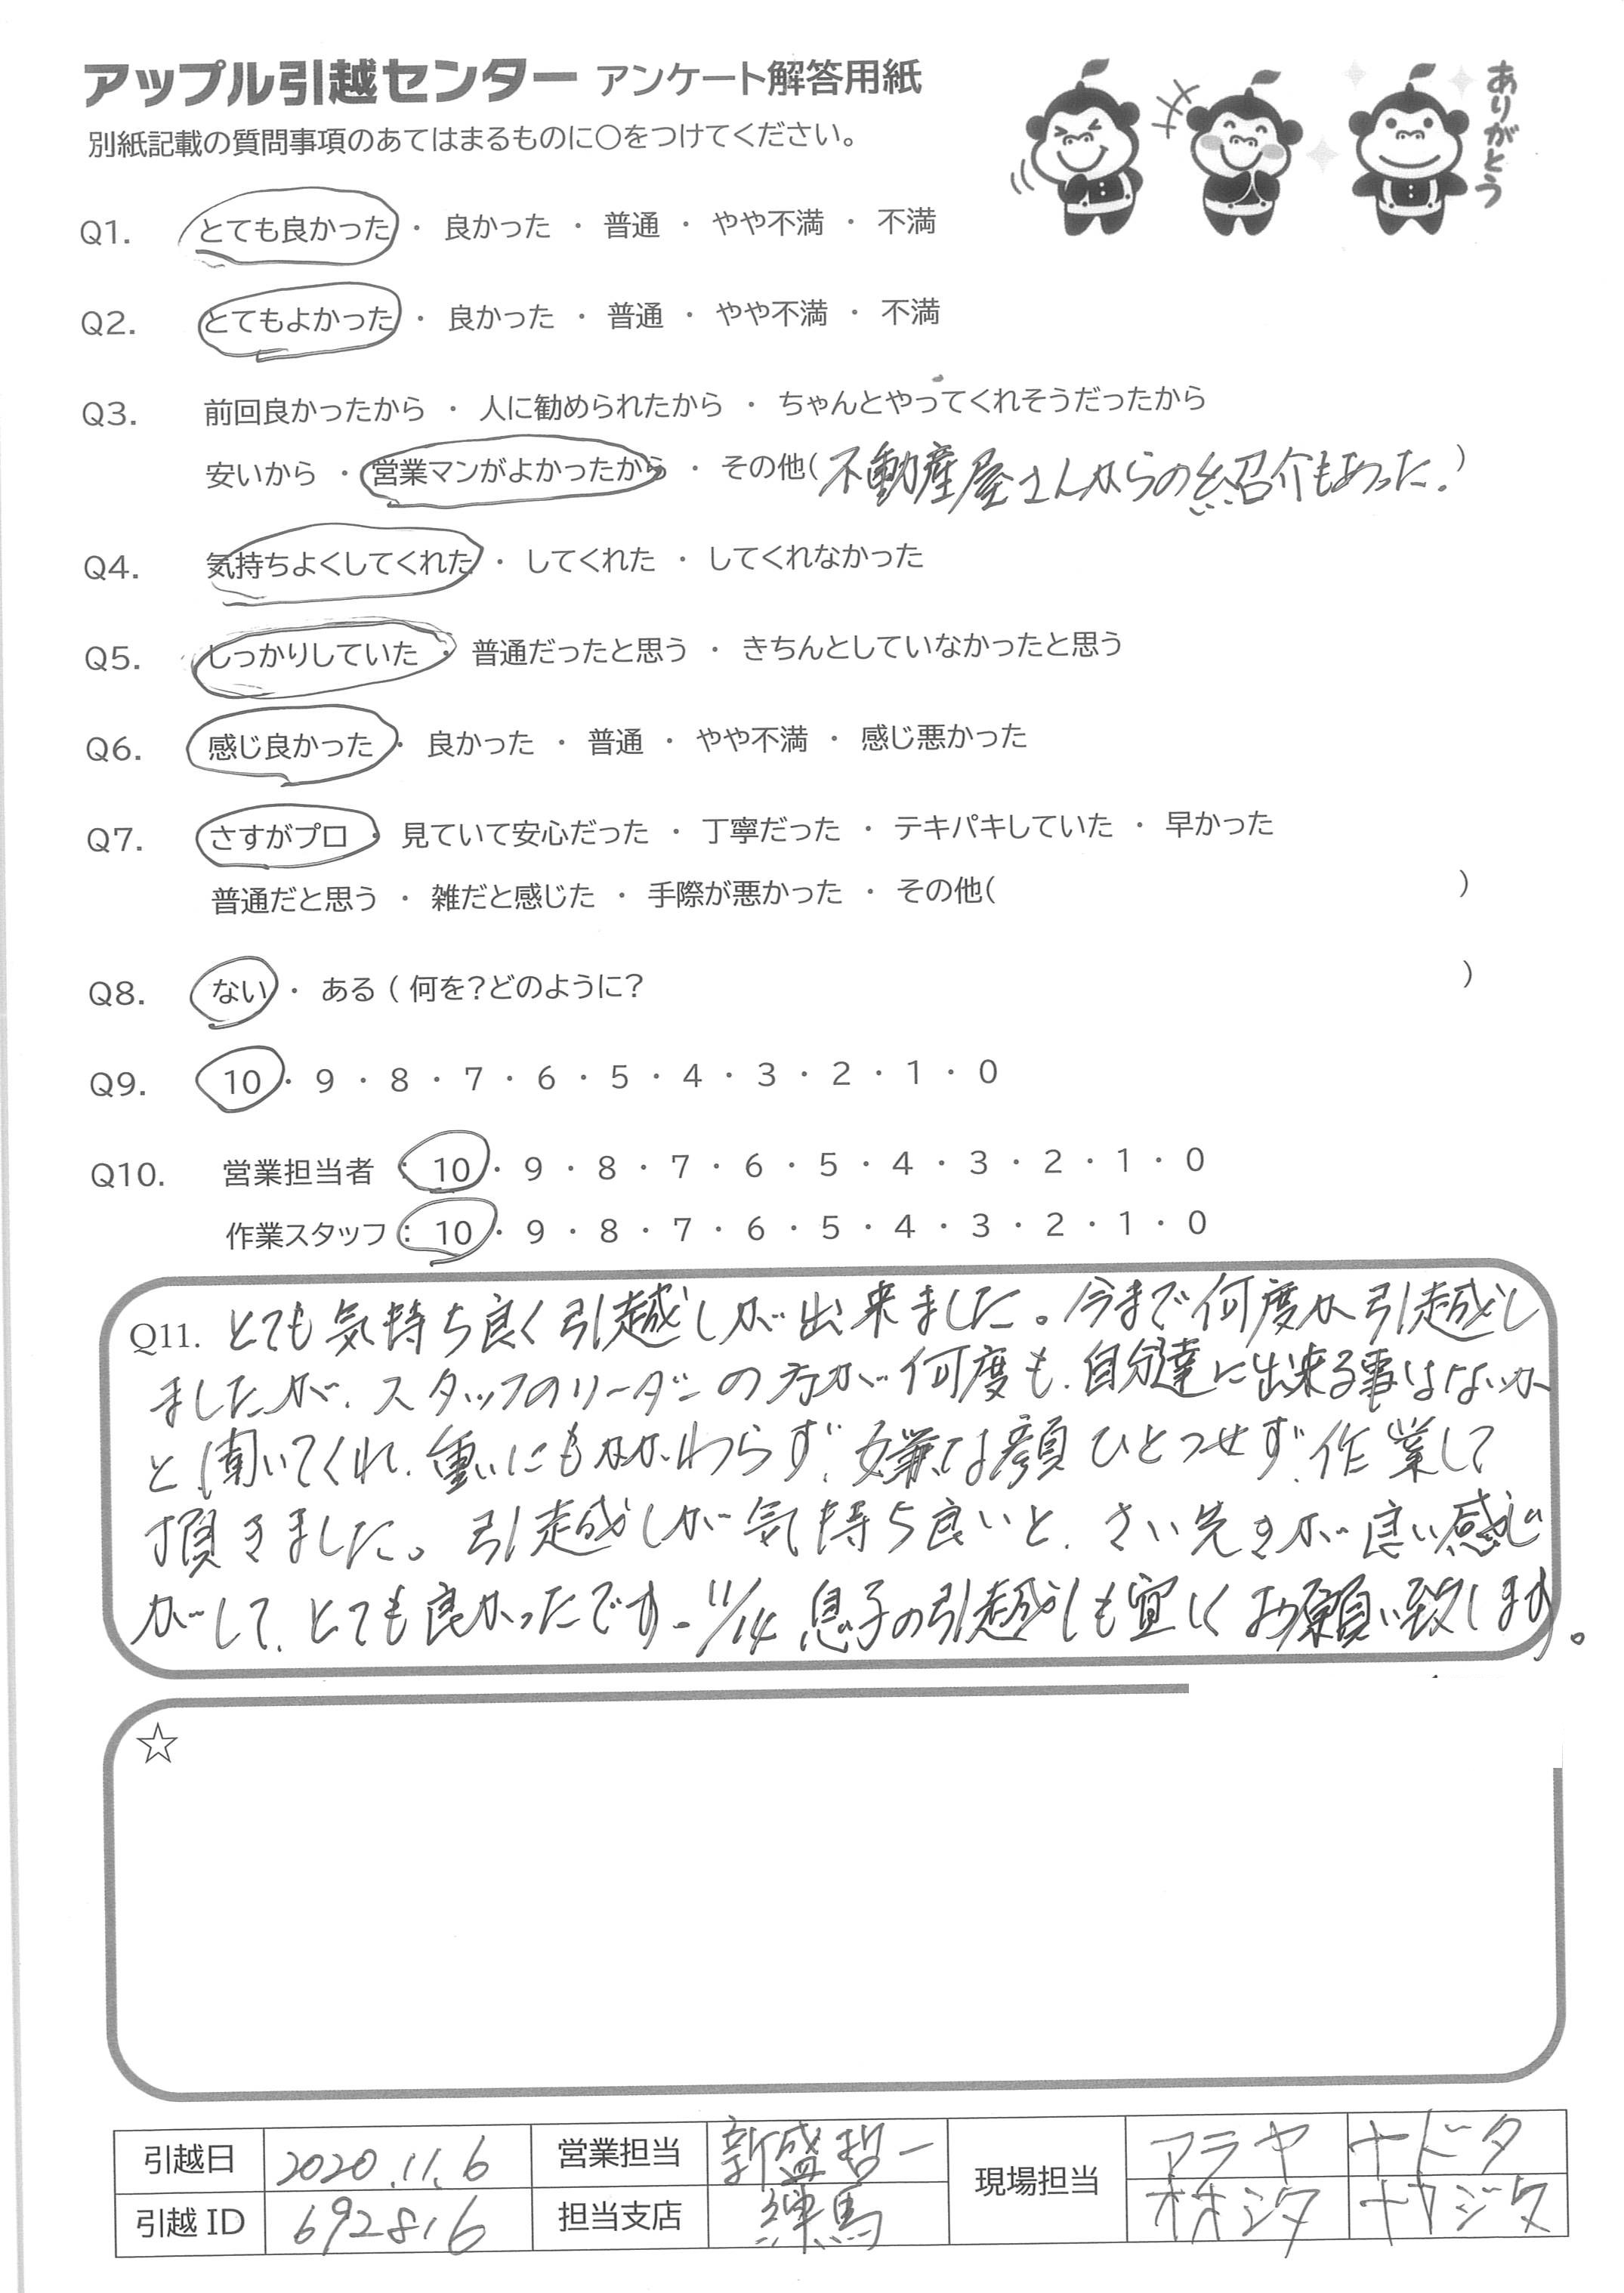 アップル引越センター アンケート解答用紙
別紙記載の質問事項のあてはまるものに〇をつけてください。
ありがとう
Q1. とても良かった ・ 良かった ・ 普通 ・ やや不満 ・ 不満
Q2. とてもよかった ・ 良かった ・ 普通 ・ やや不満 ・ 不満
Q3. 前回良かったから ・ 人に勧められたから ・ ちゃんとやってくれそうだったから
安いから ・ 営業マンがよかったから ・ その他( 不動産屋さんからの紹介もあった。)
Q4. 気持ちよくしてくれた ・ してくれた ・ してくれなかった
Q5. しっかりしていた ・ 普通だったと思う ・ きちんとしていなかったと思う
Q6. 感じ良かった ・ 良かった ・ 普通 ・ やや不満 ・ 感じ悪かった
Q7. さすがプロ ・ 見ていて安心だった ・ 丁寧だった ・ テキパキしていた ・ 早かった
普通だと思う ・ 雑だと感じた ・ 手際が悪かった ・ その他( )
Q8. ない ・ ある ( 何を?どのように? )
Q9. 10 ・ 9 ・ 8 ・ 7 ・ 6 ・ 5 ・ 4 ・ 3 ・ 2 ・ 1 ・ 0
Q10. 営業担当者 : 10 ・ 9 ・ 8 ・ 7 ・ 6 ・ 5 ・ 4 ・ 3 ・ 2 ・ 1 ・ 0
作業スタッフ : 10 ・ 9 ・ 8 ・ 7 ・ 6 ・ 5 ・ 4 ・ 3 ・ 2 ・ 1 ・ 0
Q11. とても気持ち良く引越しが出来ました。今まで何度か引越し
ましたが、スタッフのリーダーの方が何度も、自分達に出来る事はないか
と聞いてくれ、重いにもかかわらず、嫌な顔ひとつせず、作業して
頂きました。引越しが気持ち良いと、さい先きが良い感じ
がして、とても良かったです。11/14 息子の引越しも宜しくお願い致します。
☆
引越日 2020.11.6 営業担当 新盛哲一 現場担当 アラヤ ヤドタ
引越 ID 692816 担当支店 練馬